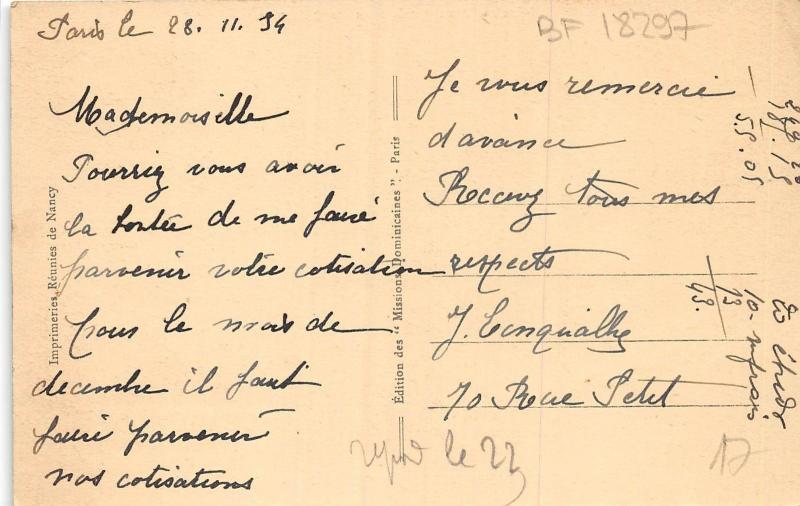 Paris le 28. 11. 34
BF 18297
Mademoiselle
Pourriez vous avoir
la bontée de me faire
parvenir votre cotisation
pour le mois de
decembre il faut
faire parvenir
nos cotisations
Je vous remercie
d'avance
Recevez tous mes
respects
J.
70 Rue Petit
le 22
17
Imprimeries Réunies de Nancy
Édition des " Missions Dominicaines " - Paris
55.05
13
43.